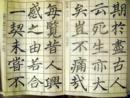 期於盡古人
云死生亦大
矣豈不痛哉
每覽昔人興
感之由若合
一契未嘗不